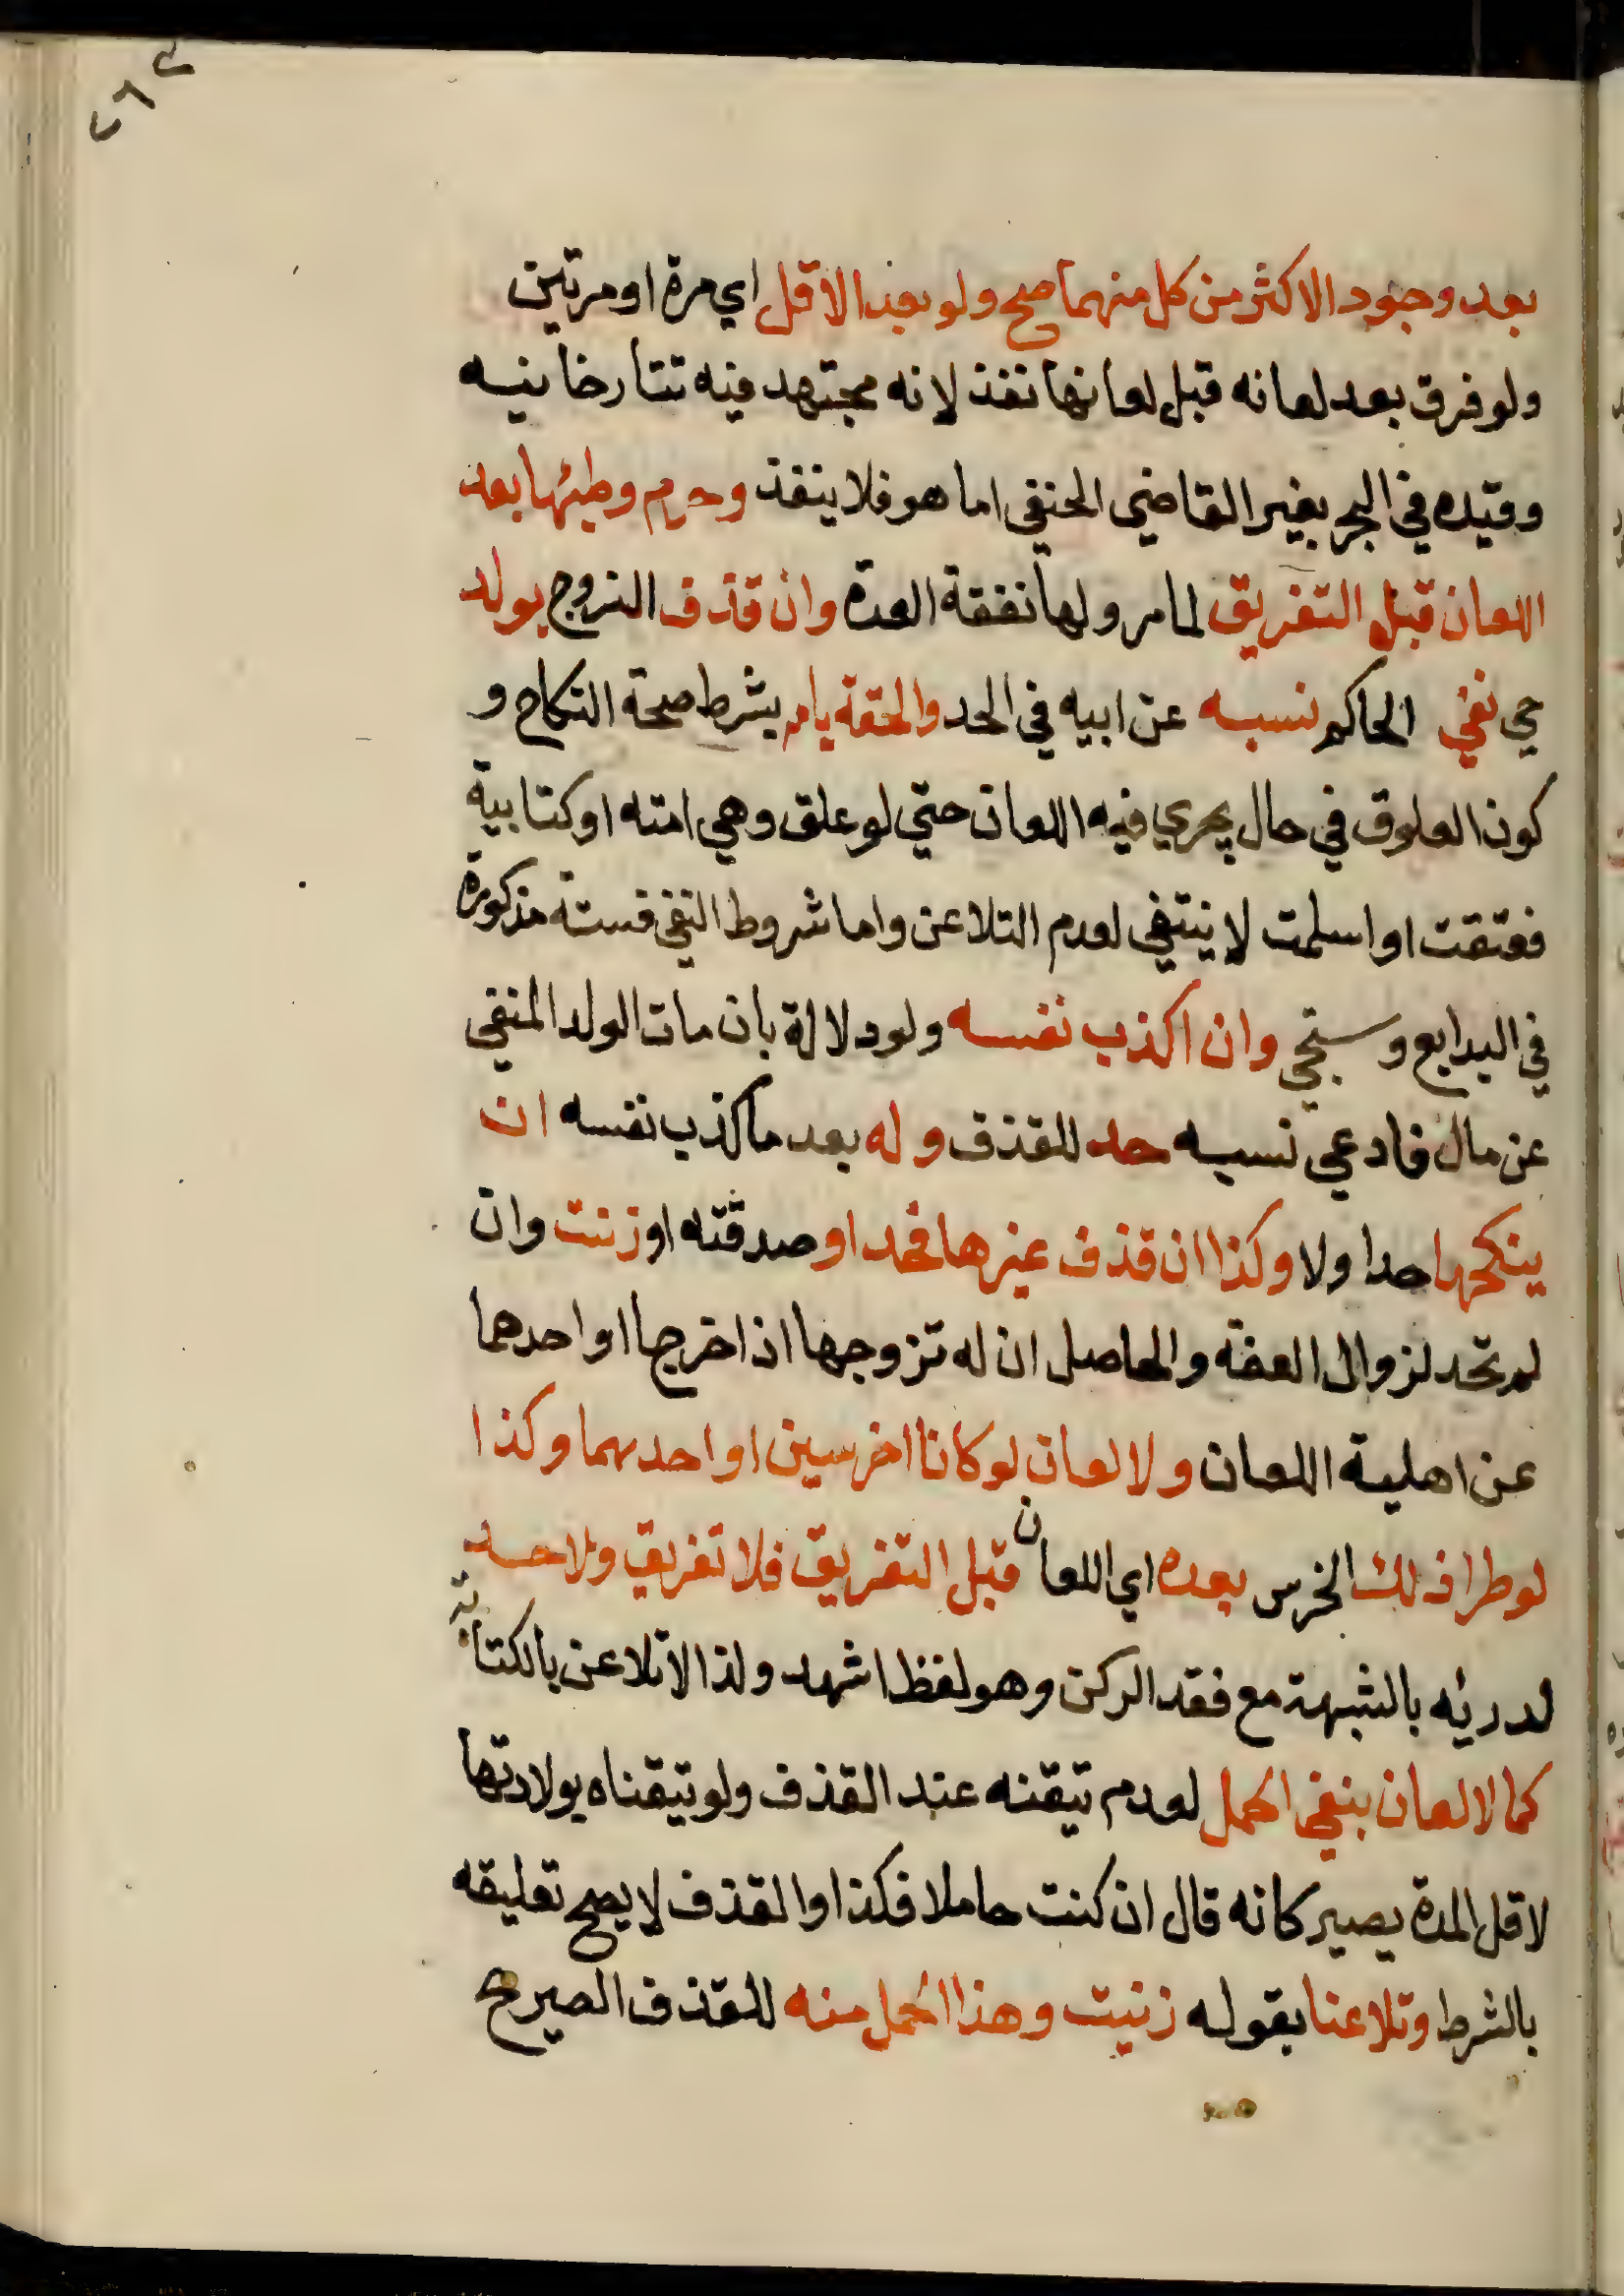 بعد وجود الاكثر من كل منهما صح ولو بعد الاقل اي مرة او مرتين
ولو فرق بعد لعانه قبل لعانها نفذ لانه مجتهد فيه تتارخانيه
وقيده في البحر بغير القاضي الحنفي اما هو فلا ينفذ وحرم وطيئها بعد
اللعان قبل التفريق لما مر ولها نفقة العدة وان قذف الزوج بولد
حي نفي الحاكم نسبه عن ابيه في الحد والحقه بامه بشرط صحة النكاح و
كون العلوق في حال يجري فيه اللعان حتي لو علق وهي امته او كتابية
فعتقت او اسلمت لا ينتفي لعدم التلاعن واما شروط النفي فستة مذكورة
في البدايع وستجي وان اكذب نفسه ولو دلالة بان مات الولد المنفي
عن مال فادعي نسبه حد للقذف وله بعد ما كذب نفسه ان
ينكحها حدا ولا وكذا ان قذف غيرها فحد او صدقته او زنت وان
لم تحد لزوال العفة والحاصل ان له تزوجها اذا خرجا او احدهما
عن اهلية اللعان ولا لعان لو كانا اخرسين او احدهما وكذا
لو طرا ذلك الخرس بعده اي اللعان قبل التفريق فلا تفريق ولا حد
لدرئه بالشبهة مع فقد الركن وهو لفظ اشهد ولذا لا تلاعن بالكتابة
كما لا لعان بنفي الحمل لعدم تيقنه عند القذف ولو تيقناه بولادتها
لاقل المدة يصير كانه قال ان كنت حاملا فكذا والقذف لا يصح تعليقه
بالشرط وتلاعنا بقوله زنيت وهذا الحمل منه للقذف الصريح